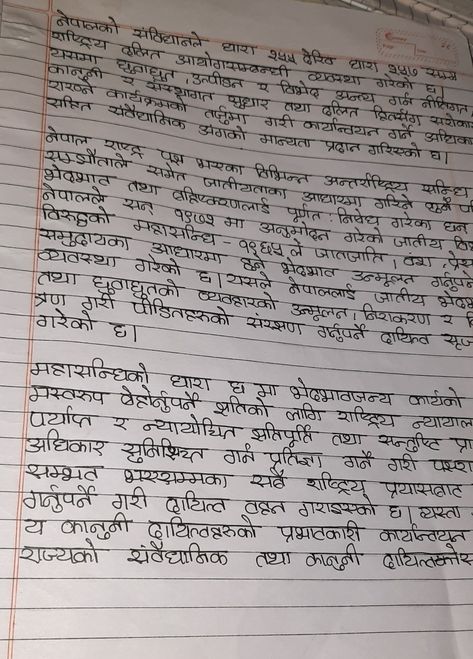 नेपालको संविधानले धारा २५५ देखि धारा २५७ सम्म
राष्ट्रिय दलित आयोगसम्बन्धी व्यवस्था गरेको छ।
यसमा छुवाछुत, उत्पीडन र विभेद अन्त्य गर्न नीतिगत
कानूनी र संस्थागत सुधार तथा दलित हितसँग सरोका
राख्ने कार्यक्रमको तर्जुमा गरी कार्यान्वयन गर्ने अधिका
सहित संवैधानिक अंगको मान्यता प्रदान गरिएको छ।
नेपाल राष्ट्र पक्ष भएका विभिन्न अन्तर्राष्ट्रिय सन्धि
सम्झौताले समेत जातीयताका आधारमा गरिने कुनै प
भेदभाव तथा बहिष्करणलाई पूर्णतः निषेध गरेका छन
नेपालले सन् १९७१ मा अनुमोदन गरेको जातीय वि
विरुद्धको महासन्धि - १९६५ ले जातजाति, वंश, प्रेश
समुदायका आधारमा हुने भेदभाव उन्मूलन गर्नुपर्ने
व्यवस्था गरेको छ। यसले नेपाललाई जातीय भेदभ
तथा छुवाछुतको व्यवहारको उन्मूलन, निराकरण र नि
त्रण गरी पीडितहरुको संरक्षण गर्नुपर्ने दायित्व सृज
गरेको छ।
महासन्धिको धारा ६ मा भेदभावजन्य कार्यको
मस्वरुप बेहोर्नुपर्ने क्षतिको लागि राष्ट्रिय न्यायाल
पर्याप्त र न्यायोचित क्षतिपूर्ति तथा सन्तुष्टि प्रा
अधिकार सुनिश्चित गर्न प्रतिज्ञा गर्ने गरी पक्षरा
सम्भव भएसम्मका सबै राष्ट्रिय प्रयासबाट
गर्नुपर्ने गरी दायित्व वहन गराइएको छ। यस्ता
य कानुनी दायित्वहरुको प्रभावकारी कार्यान्वयन
राज्यको संवैधानिक तथा कानुनी दायित्वभित्र